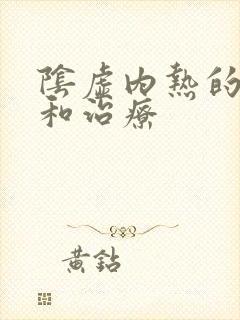 陰虛內熱的
和治療
黃鉆